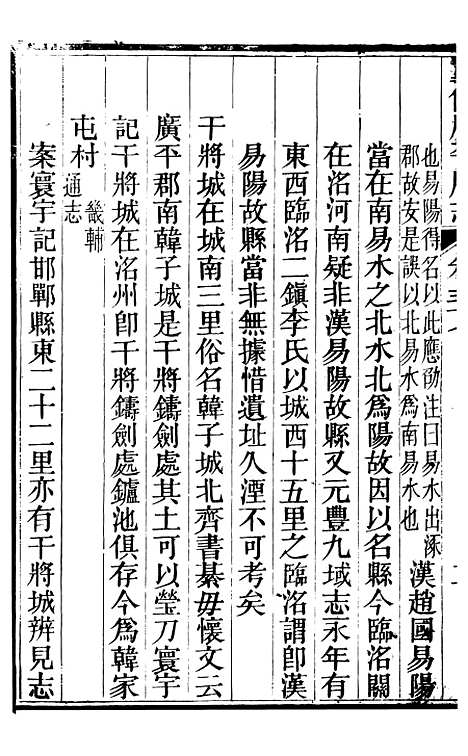 也易陽得名以此應劭注曰易水出涿
郡故安是誤以北易水爲南易水也
漢趙國易陽
當在南易水之北水北爲陽故因以名縣今臨洺關
在洺河南疑非漢易陽故縣又元豐九域志永年有
東西臨洺二鎮李氏以城西十五里之臨洺謂卽漢
易陽故縣當非無據惜遺址久湮不可考矣
干將城在城南三里俗名韓子城北齊書綦毋懷文云
廣平郡南韓子城是干將鑄劍處其土可以瑩刀寰宇
記干將城在洺州卽干將鑄劍處鑪池俱存今爲韓家
屯村畿輔
通志
案寰宇記邯鄲縣東二十二里亦有干將城辨見志